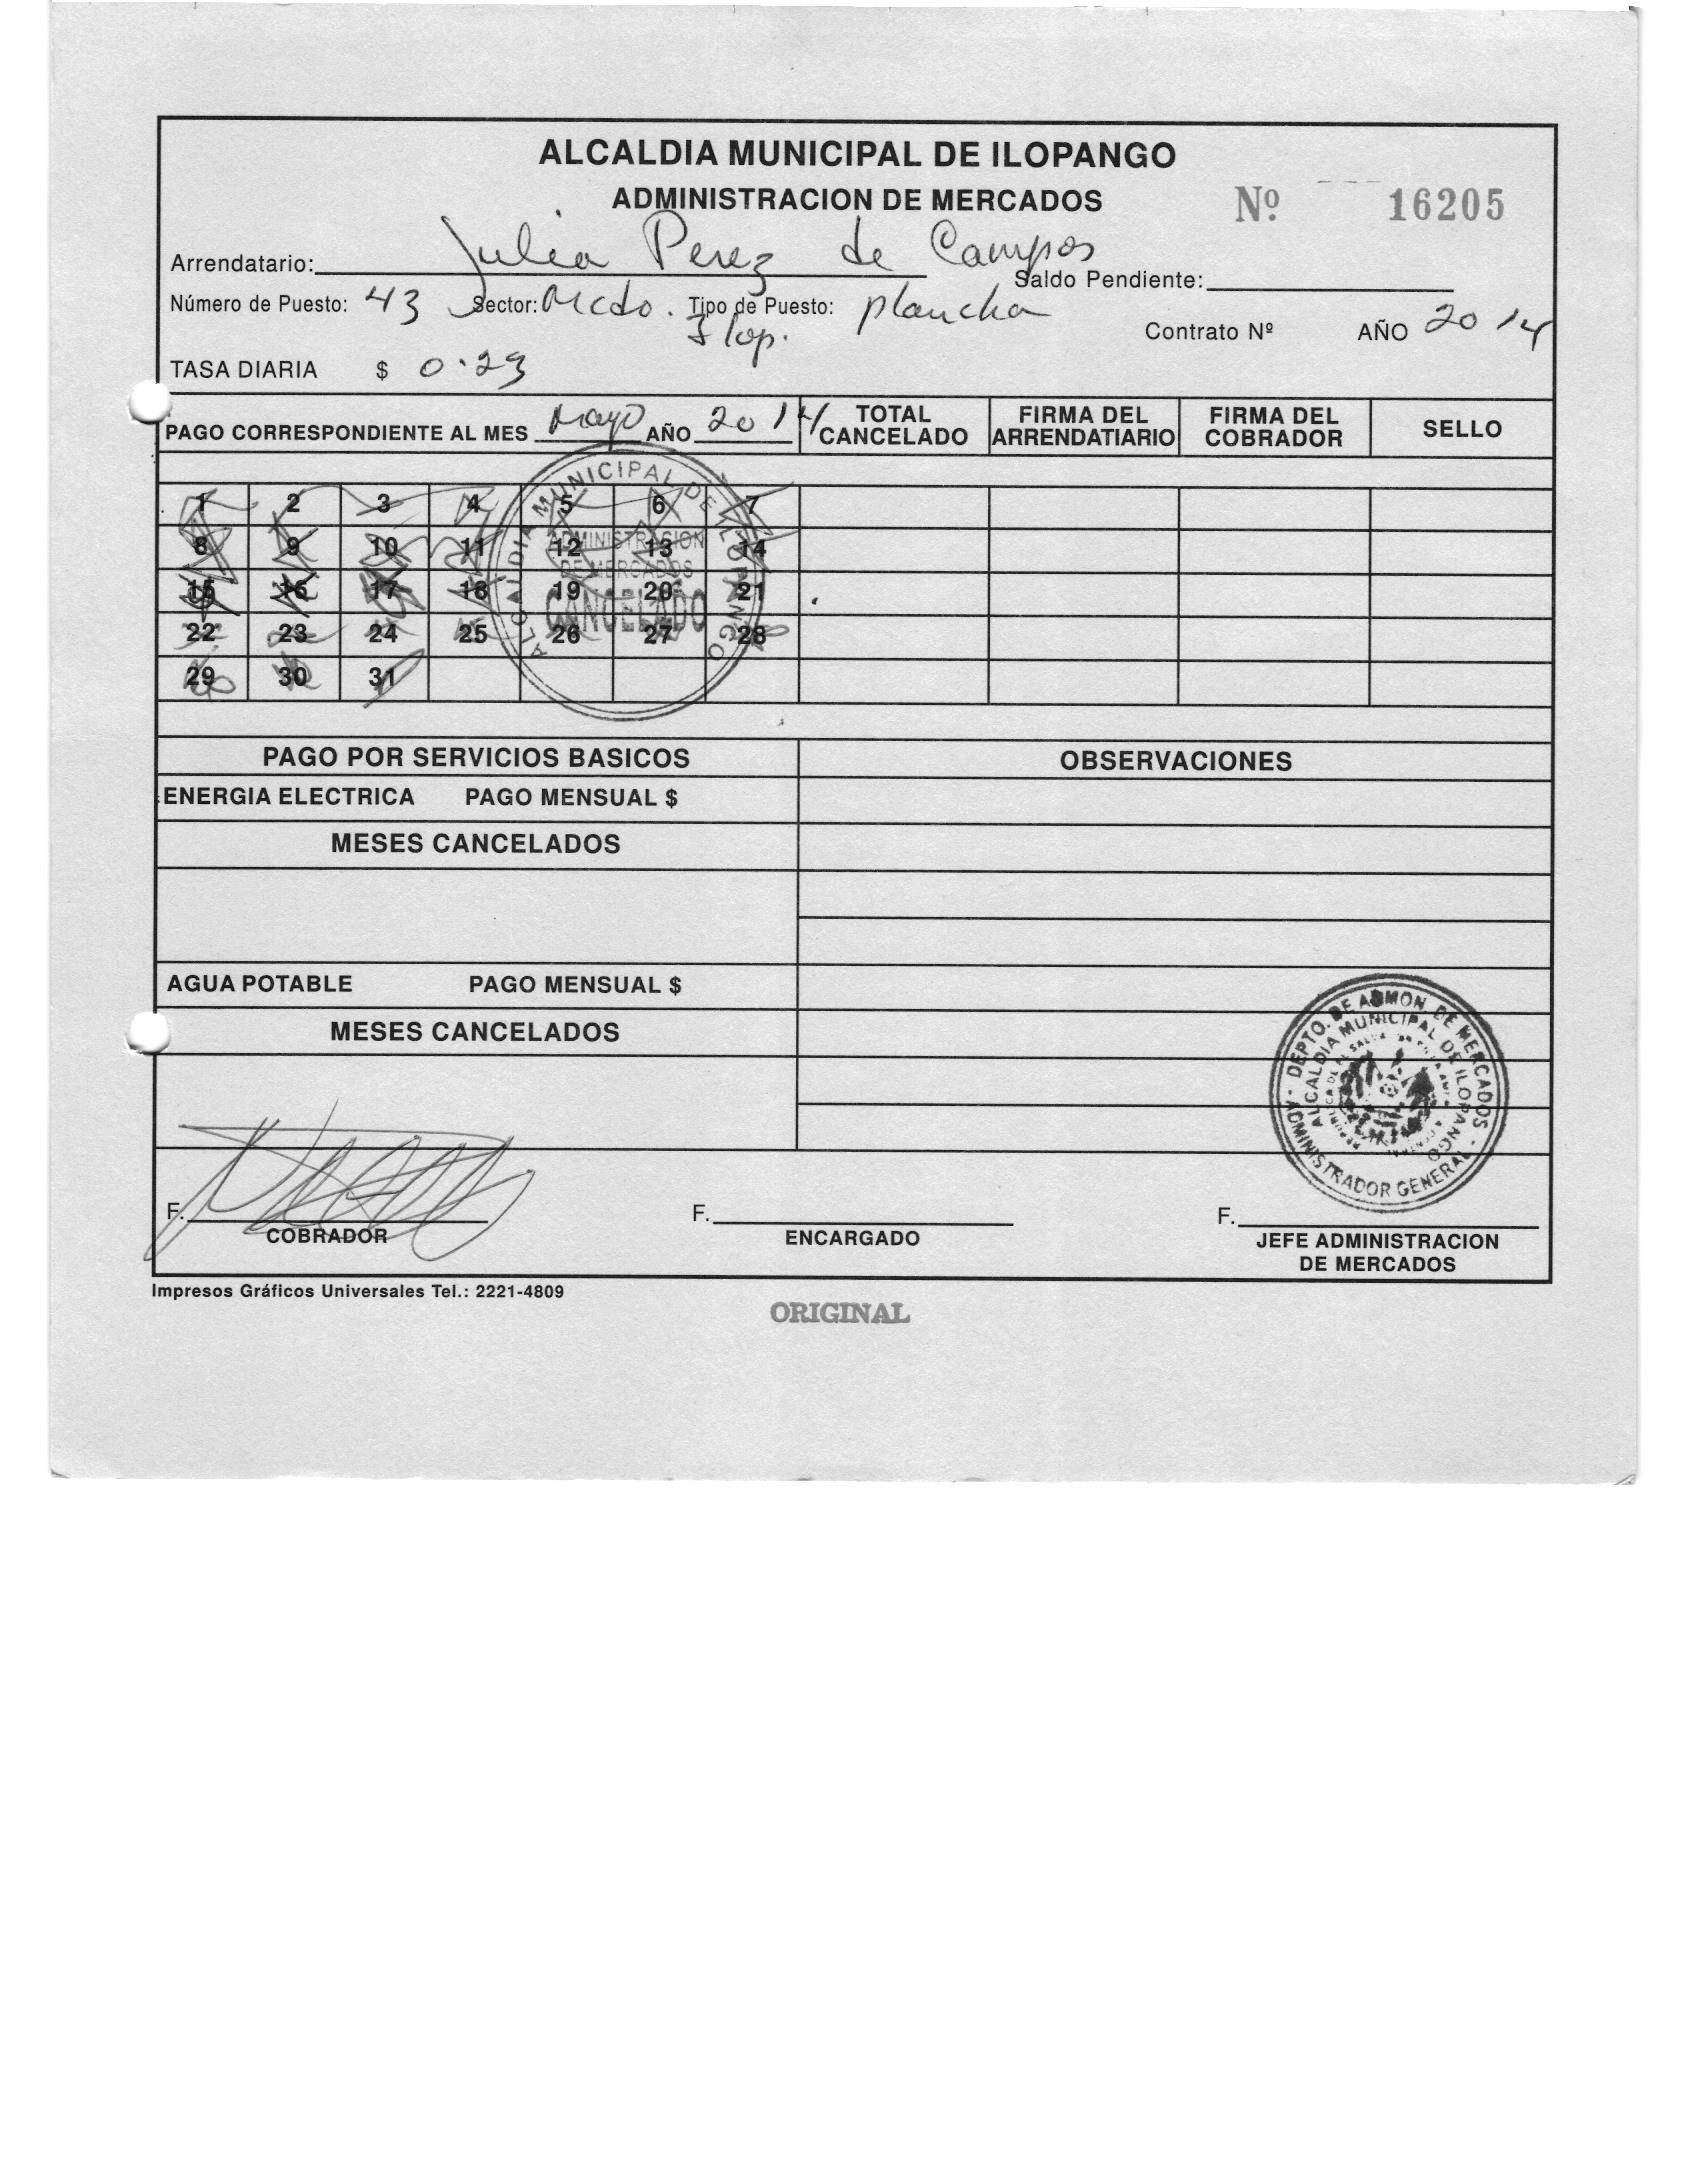 ALCALDIA MUNICIPAL DE ILOPANGO
ADMINISTRACION DE MERCADOS
Nº 16205
Arrendatario: Julia Perez de Campos
Saldo Pendiente:
Número de Puesto: 43 Sector: Mcdo. Ilop. Tipo de Puesto: plancha
Contrato Nº AÑO 2014
TASA DIARIA $ 0.23
PAGO CORRESPONDIENTE AL MES Mayo AÑO 2014 TOTAL CANCELADO FIRMA DEL ARRENDATIARIO FIRMA DEL COBRADOR SELLO
1 2 3 4 5 6 7
8 9 10 11 12 13 14
15 16 17 18 19 20 21
22 23 24 25 26 27 28
29 30 31
ALCALDIA MUNICIPAL DE ILOPANGO
ADMINISTRACION
DE MERCADOS
CANCELADO
PAGO POR SERVICIOS BASICOS OBSERVACIONES
ENERGIA ELECTRICA PAGO MENSUAL $
MESES CANCELADOS
AGUA POTABLE PAGO MENSUAL $
MESES CANCELADOS
DEPTO. DE ADMON. DE MERCADOS
ALCALDIA MUNICIPAL DE ILOPANGO
ADMINISTRADOR GENERAL
F. F. F.
COBRADOR ENCARGADO JEFE ADMINISTRACION
DE MERCADOS
Impresos Gráficos Universales Tel.: 2221-4809
ORIGINAL